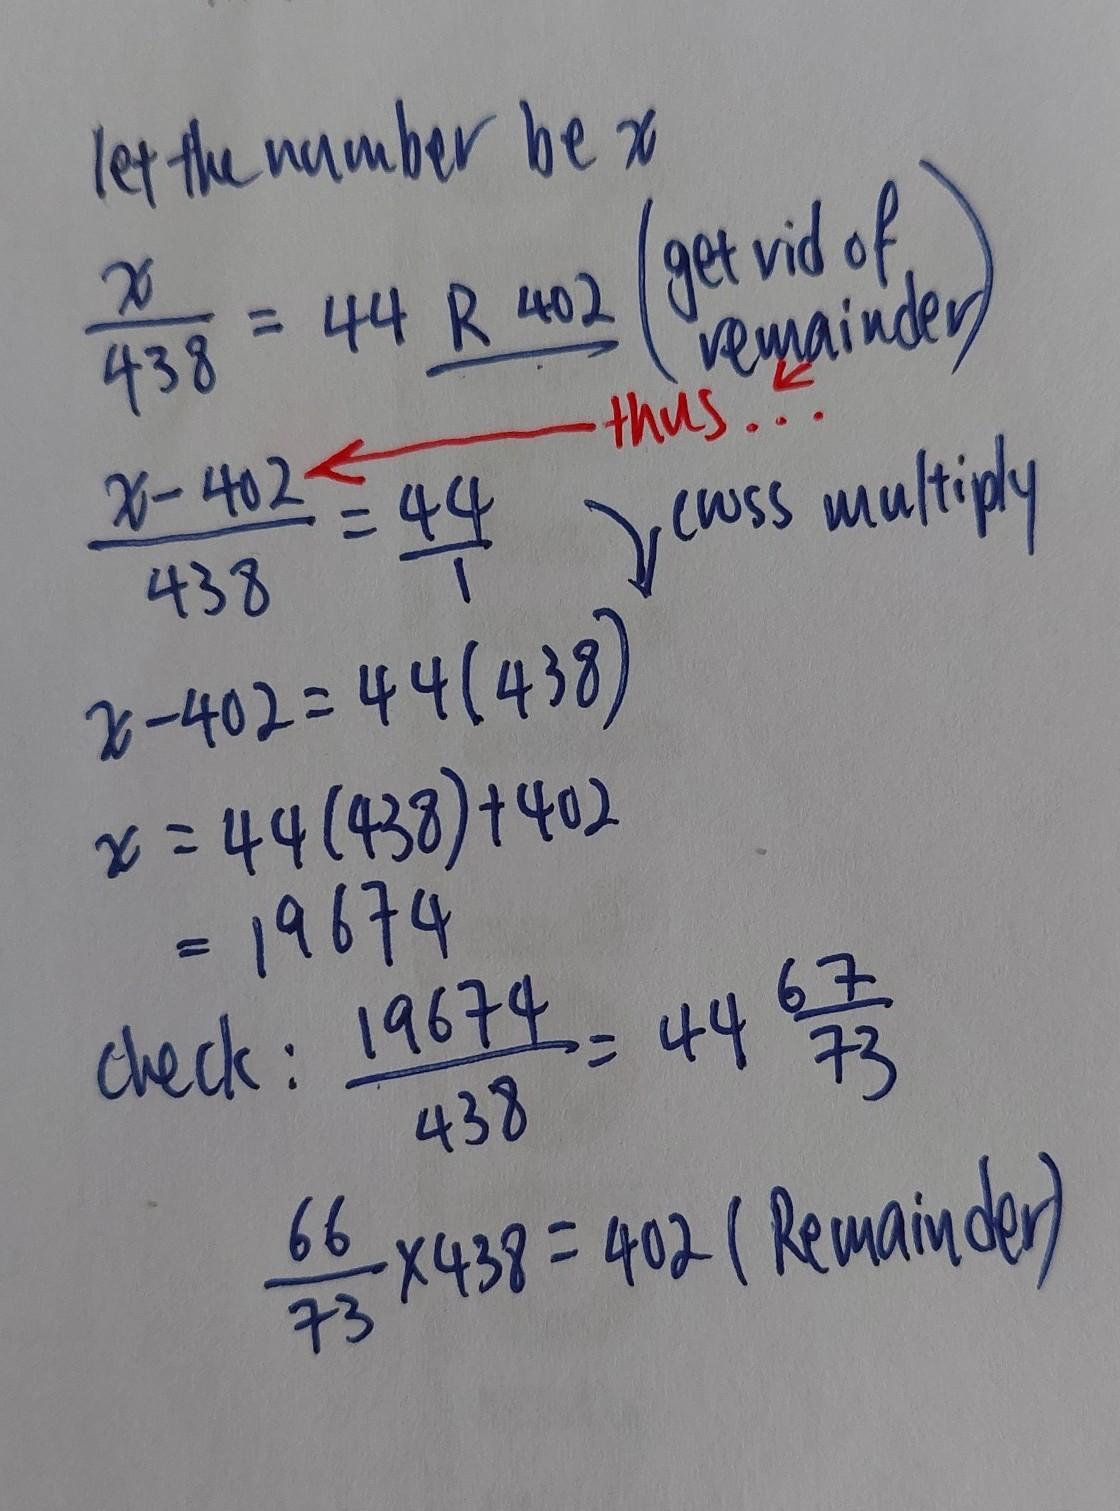 let the number be x
x/438 = 44 R 402 (get rid of remainder)
thus...
x-402/438 = 44/1 cross multiply
x-402 = 44(438)
x = 44(438)+402
= 19674
check: 19674/438 = 44 67/73
66/73 x438 = 402 (Remainder)